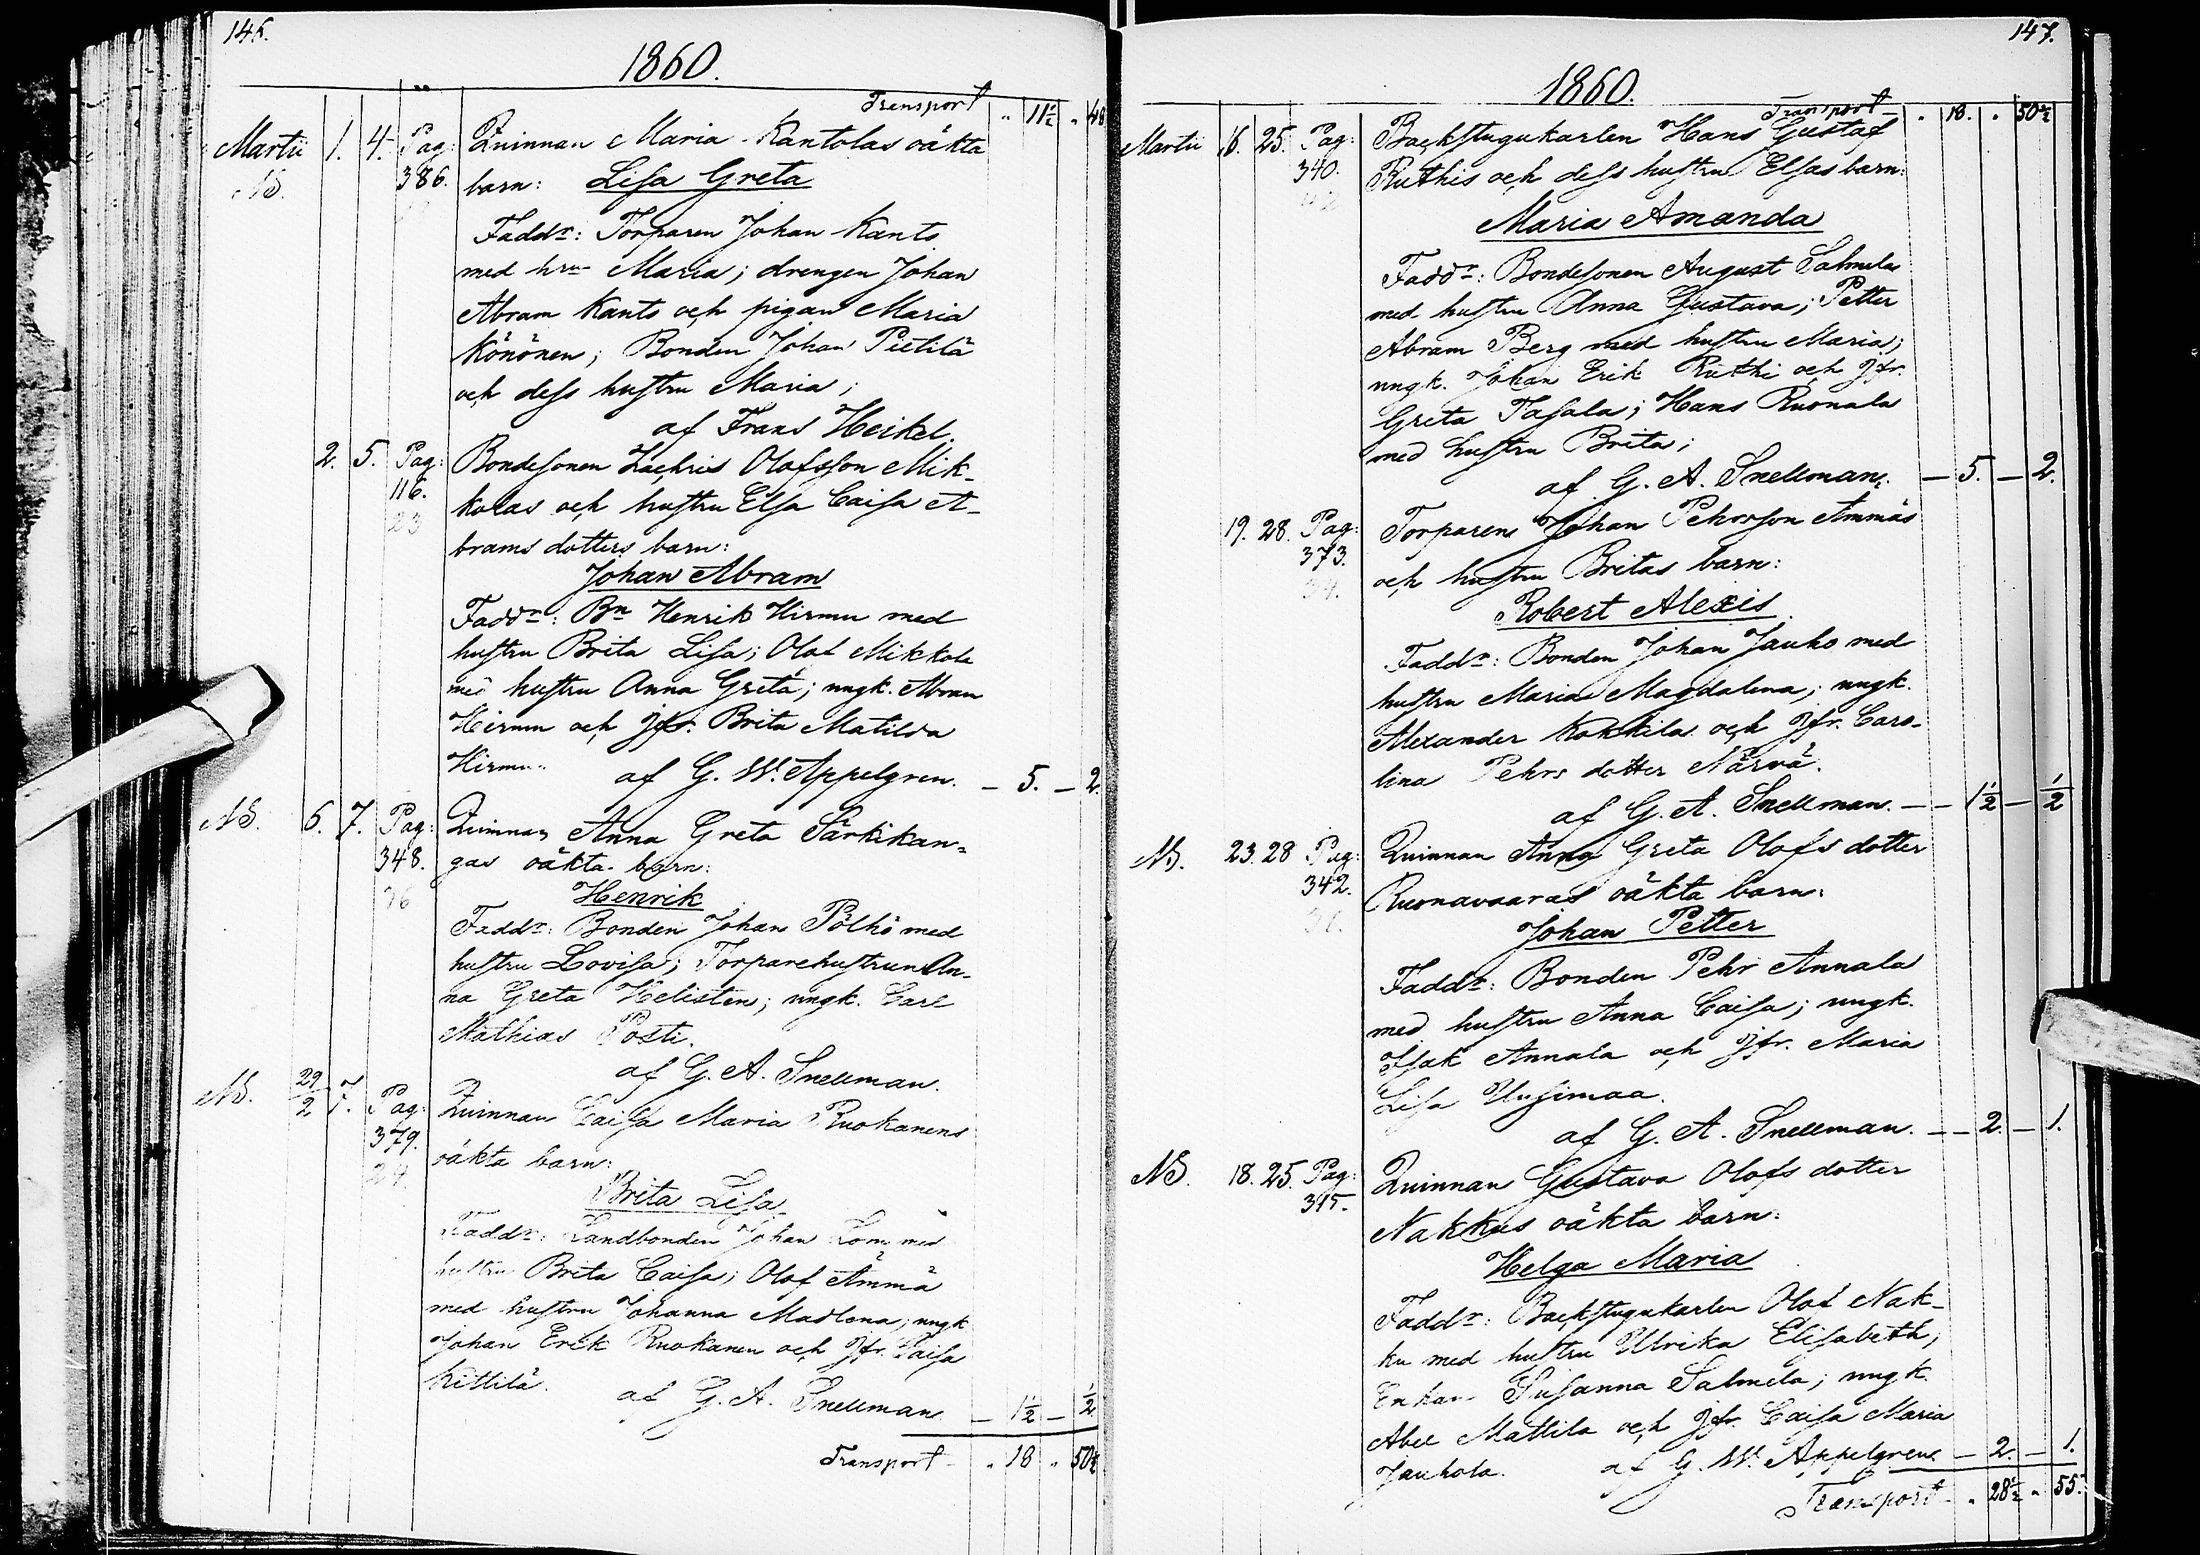 146.
1860.
Transport " 11½ " 48
Martii 1. 4. Pag: Quinnan Maria Kantolas oäkta
NB. 386. barn: Lisa Greta
Faddr: Torparen Johan Kanto
med hrn Maria; drengen Johan
Abram Kanto och pigan Maria
Könönen; Bonden Johan Pietilä
och dess hustru Maria;
af Frans Heikel.
2. 5. Pag: Bondesonen Zachris Olofsson Mik-
116. kolas och hustru Elsa Caisa A-
23 brams dotters barn:
Johan Abram
Faddr: Bn Henrik Hirmu med
hustru Brita Lisa; Olof Mikkola
med hustru Anna Greta; ungk. Abram
Hirmu och jfr. Brita Matilda
Hirmu. af G. W. Appelgren. – 5. – 2.
NB. 6. 7. Pag: Quinnan Anna Greta Särkikan-
348. gas oäkta barn:
Henrik
Faddr: Bonden Johan Pölhö med
hustru Lovisa; Torparehustrun An-
na Greta Helisten; ungk. Carl
Mathias Posti.
af G. A. Snellman.
NB. 29/2 7. Pag: Quinnan Caisa Maria Ruokanens
379. oäkta barn:
Brita Lisa
Faddr: Landbonden Johan med
hustru Brita Caisa; Olof Ämmä
med hustru Johanna Madlena; ungk
Johan Erik Ruokanen och Jfr. Caisa
Kittilä.
af G. A. Snellman – 1½ – ½
Transport – " 18 " 50½
147.
1860.
Transport – " 18. " 50½
Martii 16. 25. Pag: Backstugukarlen Hans Gustaf
340. Ruthis och dess hustru Elsas barn:
Maria Amanda
Faddr: Bondesonen August Salmela
med hustru Anna Gustava; Petter
Abram Berg med hustru Maria;
ungk. Johan Erik Ruthi och Jfr.
Greta Tasala; Hans Ruonala
med hustru Brita;
af G. A. Snellman. – 5. – 2.
19. 28. Pag: Torparen Johan Pehrsson Ämmäs
373. och hustru Britas barn:
Robert Alexis
Faddr: Bonden Johan Jauho med
hustru Maria Magdalena; ungk.
Alexander Kokkila och Jfr. Caro-
lina Pehrs dotter Närvä.
af G. A. Snellman. – – 1½ – ½
NB. 23. 28 Pag: Quinnan Anna Greta Olofs dotter
342. Ruonavaaras oäkta barn:
Johan Petter
Faddr: Bonden Pehr Annala
med hustru Anna Caisa; ungk.
Isak Annala och Jfr. Maria
Lisa Uusimaa.
af G. A. Snellman. – – 2. – 1.
NB. 18. 25. Pag: Quinnan Gustava Olofs dotter
315. Nakkus oäkta barn:
Helga Maria
Faddr: Backstugukarlen Olof Nak-
ku med hustru Ulrika Elisabeth;
Enkan Susanna Salmela; ungk.
Abel Mattila och Jfr. Caisa Maria
Jauhola. af G. W. Appelgren – 2. – 1.
Transport – " 28½ " 55.